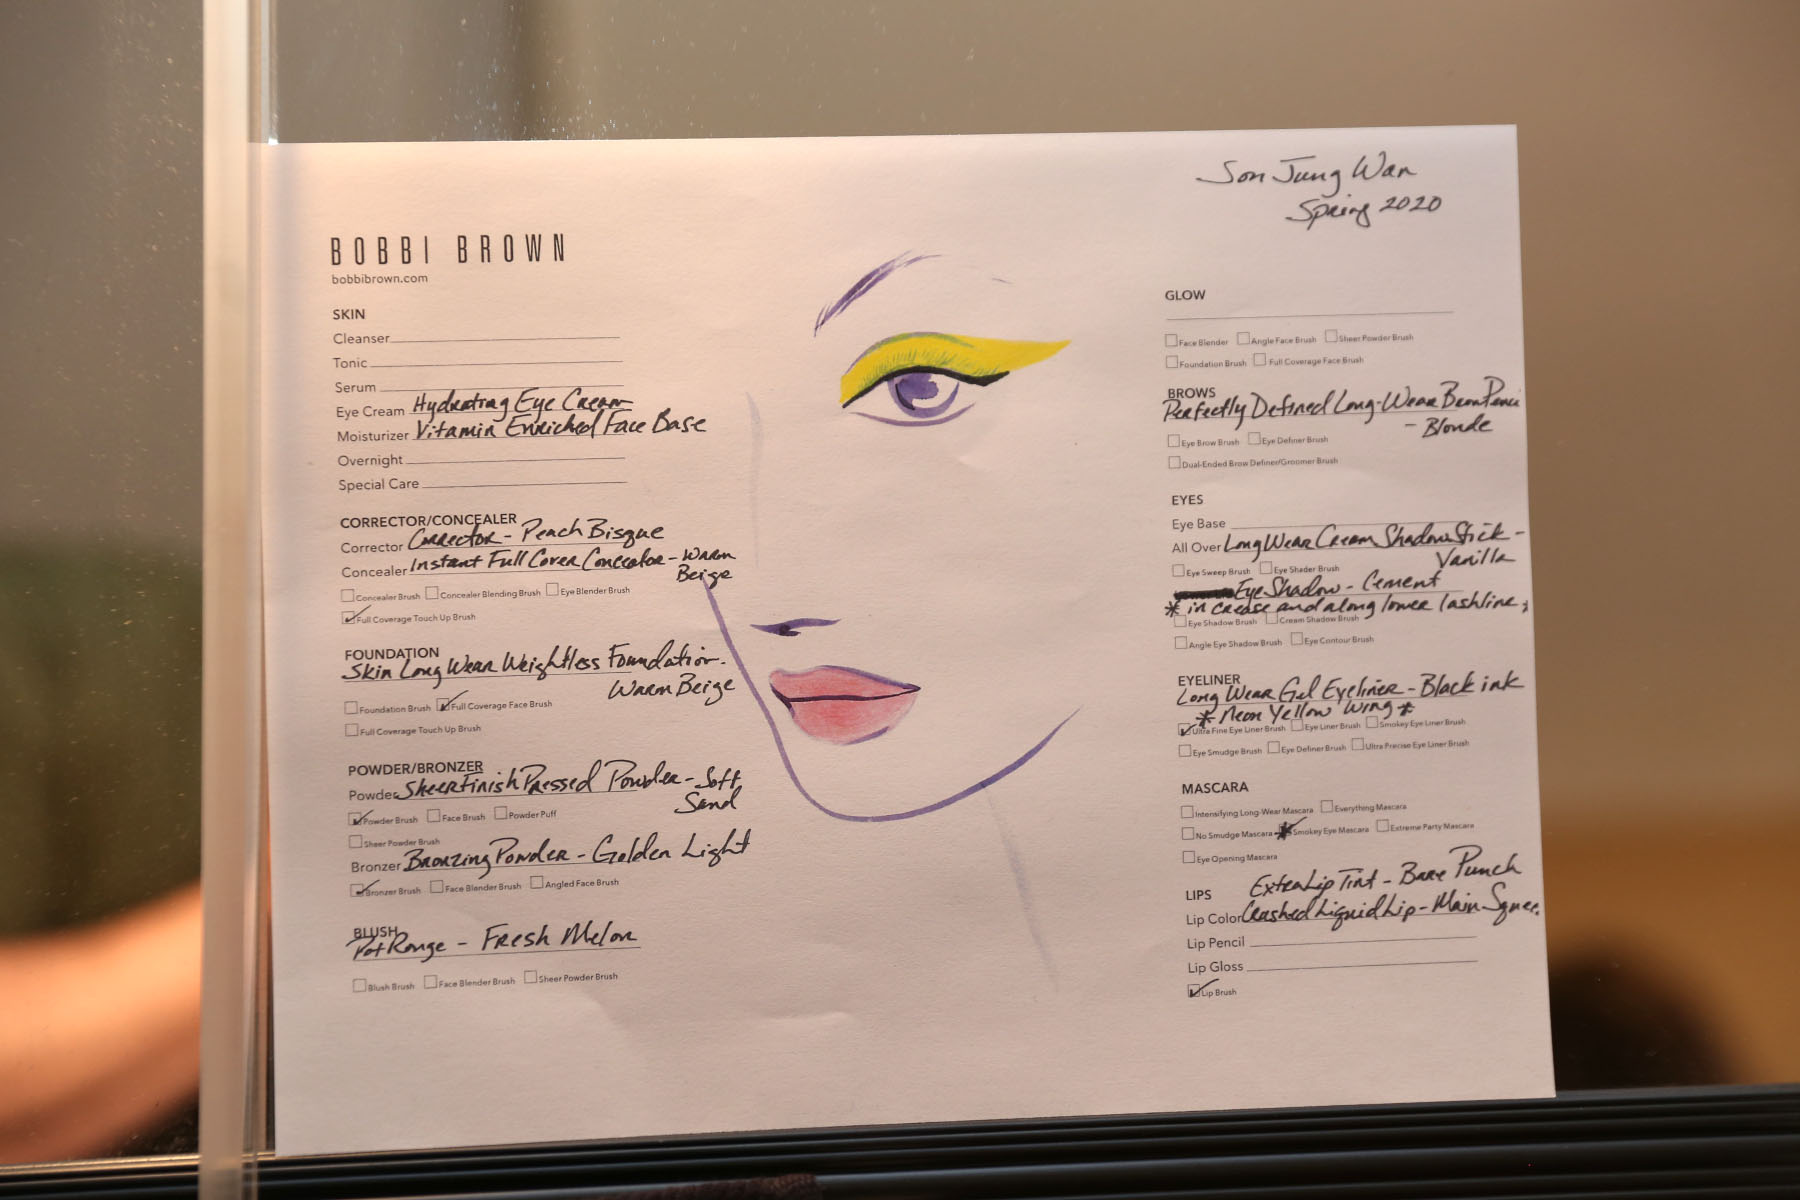 Son Jung Wan
Spring 2020
BOBBI BROWN
bobbibrown.com
SKIN
Cleanser
Tonic
Serum
Eye Cream Hydrating Eye Cream
Moisturizer Vitamin Enriched Face Base
Overnight
Special Care
CORRECTOR/CONCEALER
Corrector Corrector - Peach Bisque
Concealer Instant Full Cover Concealor - Warm
Beige
Concealer Brush Concealer Blending Brush Eye Blender Brush
Full Coverage Touch Up Brush
FOUNDATION
Skin Long Wear Weightless Foundation -
Warm Beige
Foundation Brush Full Coverage Face Brush
Full Coverage Touch Up Brush
POWDER/BRONZER
Powder Sheer Finish Pressed Powder - Soft
Sand
Powder Brush Face Brush Powder Puff
Sheer Powder Brush
Bronzer Bronzing Powder - Golden Light
Bronzer Brush Face Blender Brush Angled Face Brush
BLUSH
Pot Rouge - Fresh Melon
Blush Brush Face Blender Brush Sheer Powder Brush
GLOW
Face Blender Angle Face Brush Sheer Powder Brush
Foundation Brush Full Coverage Face Brush
BROWS
Perfectly Defined Long-Wear Brow Penci
- Blonde
Eye Brow Brush Eye Definer Brush
Dual-Ended Brow Definer/Groomer Brush
EYES
Eye Base
All Over Long Wear Cream Shadow Stick -
Vanilla
Eye Sweep Brush Eye Shader Brush
Eye Shadow - Cement
* in crease and along lower lashline *
Eye Shadow Brush Cream Shadow Brush
Angle Eye Shadow Brush Eye Contour Brush
EYELINER
Long Wear Gel Eyeliner - Black ink
* Neon Yellow Wing *
Ultra Fine Eye Liner Brush Eye Liner Brush Smokey Eye Liner Brush
Eye Smudge Brush Eye Definer Brush Ultra Precise Eye Liner Brush
MASCARA
Intensifying Long-Wear Mascara Everything Mascara
No Smudge Mascara Smokey Eye Mascara Extreme Party Mascara
Eye Opening Mascara
LIPS Extra Lip Tint - Bare Punch
Lip Color Crushed Liquid Lip - Main Squee
Lip Pencil
Lip Gloss
Lip Brush